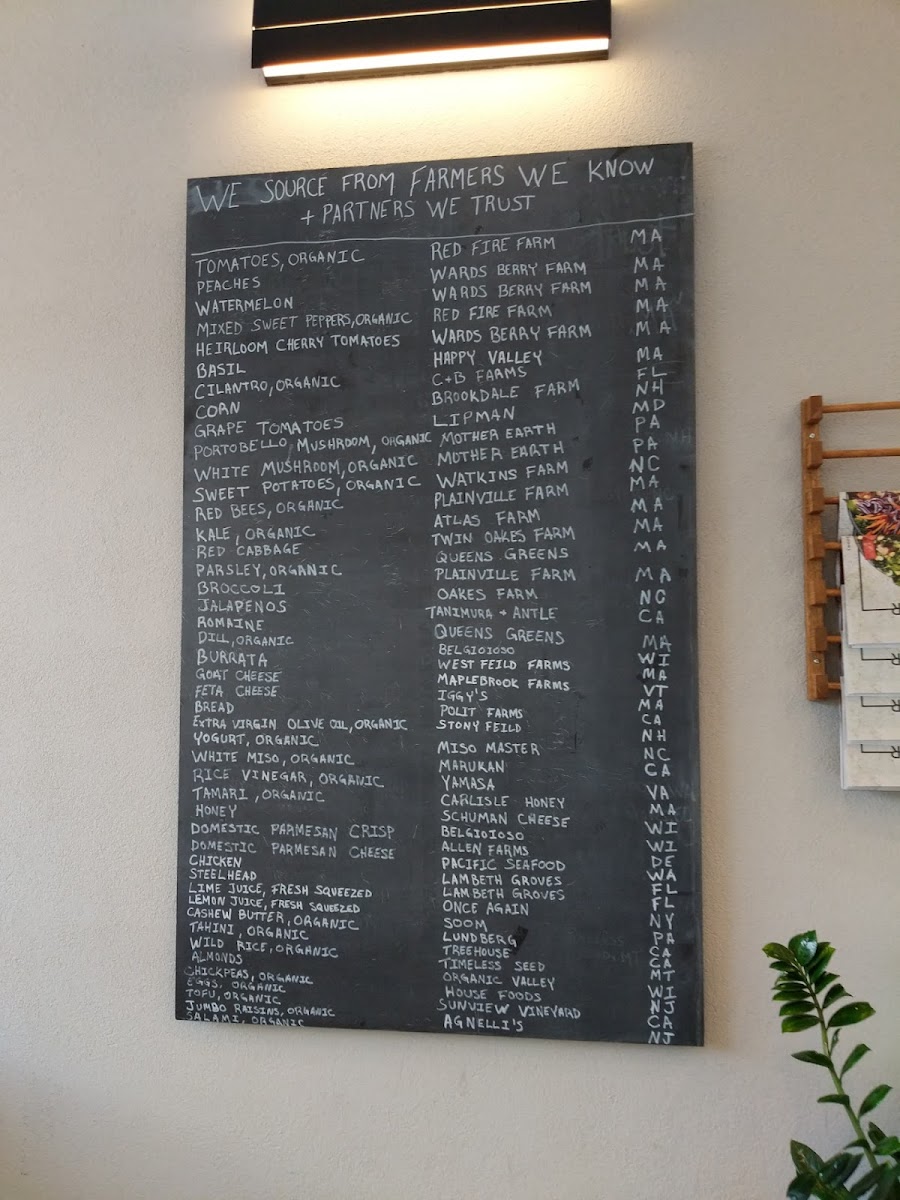 WE SOURCE FROM FARMERS WE KNOW
+ PARTNERS WE TRUST
TOMATOES, ORGANIC RED FIRE FARM MA
PEACHES WARDS BERRY FARM MA
WATERMELON WARDS BERRY FARM MA
MIXED SWEET PEPPERS, ORGANIC RED FIRE FARM MA
HEIRLOOM CHERRY TOMATOES WARDS BERRY FARM MA
BASIL HAPPY VALLEY MA
CILANTRO, ORGANIC C+B FARMS FL
CORN BROOKDALE FARM NH
GRAPE TOMATOES LIPMAN MD
PORTOBELLO MUSHROOM, ORGANIC MOTHER EARTH PA
WHITE MUSHROOM, ORGANIC MOTHER EARTH PA
SWEET POTATOES, ORGANIC WATKINS FARM NC
RED BEES, ORGANIC PLAINVILLE FARM MA
KALE, ORGANIC ATLAS FARM MA
RED CABBAGE TWIN OAKES FARM MA
PARSLEY, ORGANIC QUEENS GREENS MA
BROCCOLI PLAINVILLE FARM MA
JALAPENOS OAKES FARM NC
ROMAINE TANIMURA + ANTLE CA
DILL, ORGANIC QUEENS GREENS MA
BURRATA BELGIOIOSO WI
GOAT CHEESE WEST FEILD FARMS MA
FETA CHEESE MAPLEBROOK FARMS VT
BREAD IGGY'S MA
EXTRA VIRGIN OLIVE OIL, ORGANIC POLIT FARMS CA
YOGURT, ORGANIC STONY FEILD NH
WHITE MISO, ORGANIC MISO MASTER NC
RICE VINEGAR, ORGANIC MARUKAN CA
TAMARI, ORGANIC YAMASA VA
HONEY CARLISLE HONEY MA
DOMESTIC PARMESAN CRISP SCHUMAN CHEESE WI
DOMESTIC PARMESAN CHEESE BELGIOIOSO WI
CHICKEN ALLEN FARMS DE
STEELHEAD PACIFIC SEAFOOD WA
LIME JUICE, FRESH SQUEEZED LAMBETH GROVES FL
LEMON JUICE, FRESH SQUEEZED LAMBETH GROVES FL
CASHEW BUTTER, ORGANIC ONCE AGAIN NY
TAHINI, ORGANIC SOOM PA
WILD RICE, ORGANIC LUNDBERG CA
ALMONDS TREEHOUSE CA
CHICKPEAS, ORGANIC TIMELESS SEED MT
EGGS, ORGANIC ORGANIC VALLEY WI
TOFU, ORGANIC HOUSE FOODS NJ
JUMBO RAISINS, ORGANIC SUNVIEW VINEYARD CA
SALAMI, ORGANIC AGNELLI'S NJ